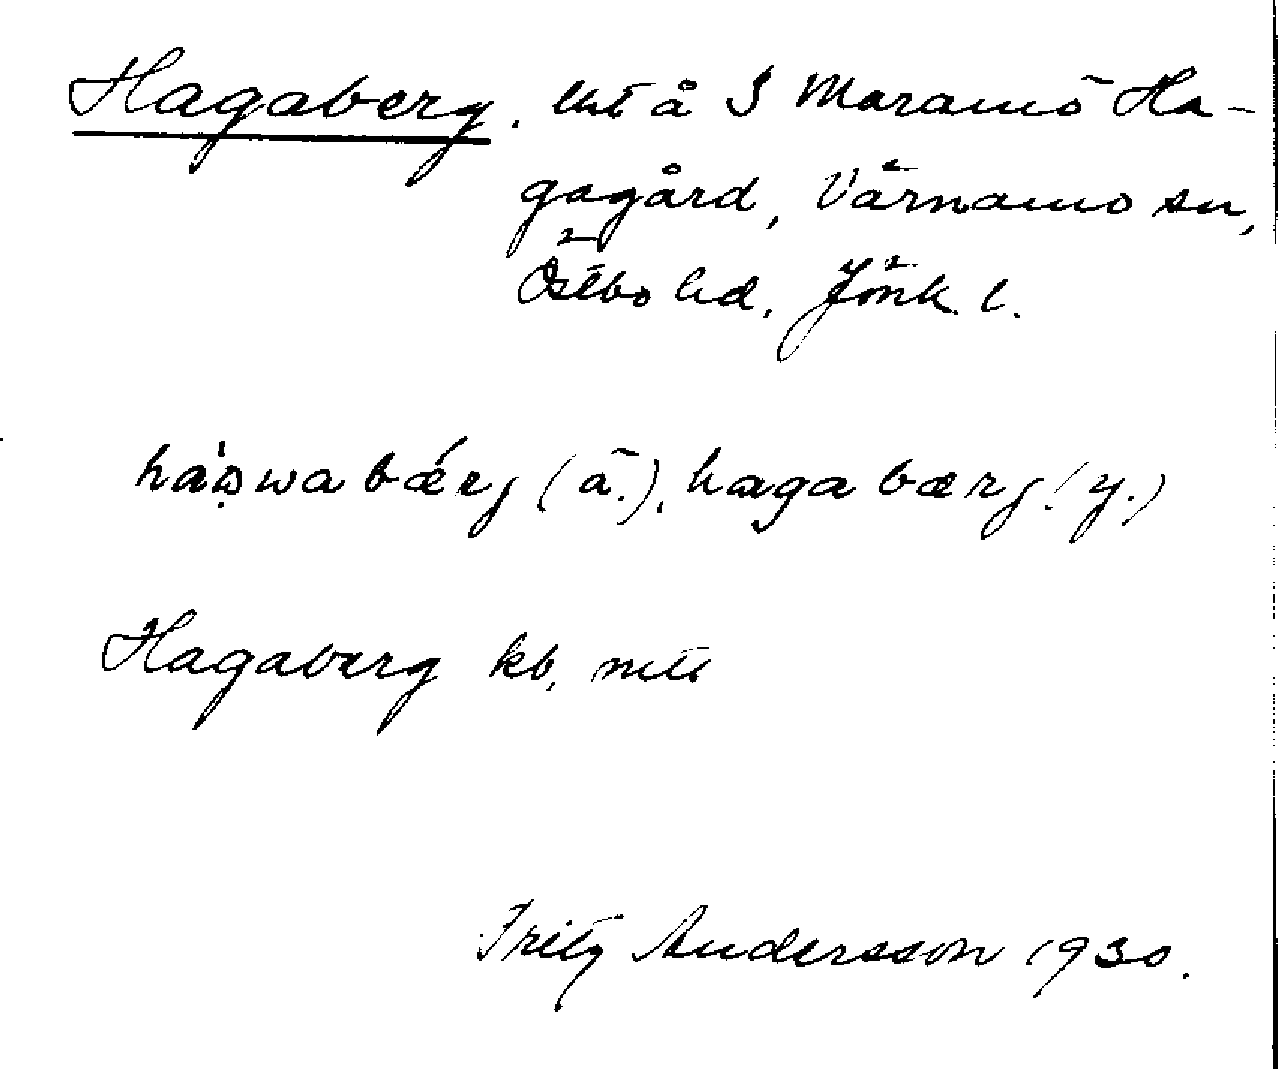 Hagaberg. lht å S Maramö Ha-
gagård, Värnamo sn,
Östbo hd, Jönk. l.
bærj (ä.), haga bærj (y.)
Hagaberg kb,
Fritz Andersson 1930.